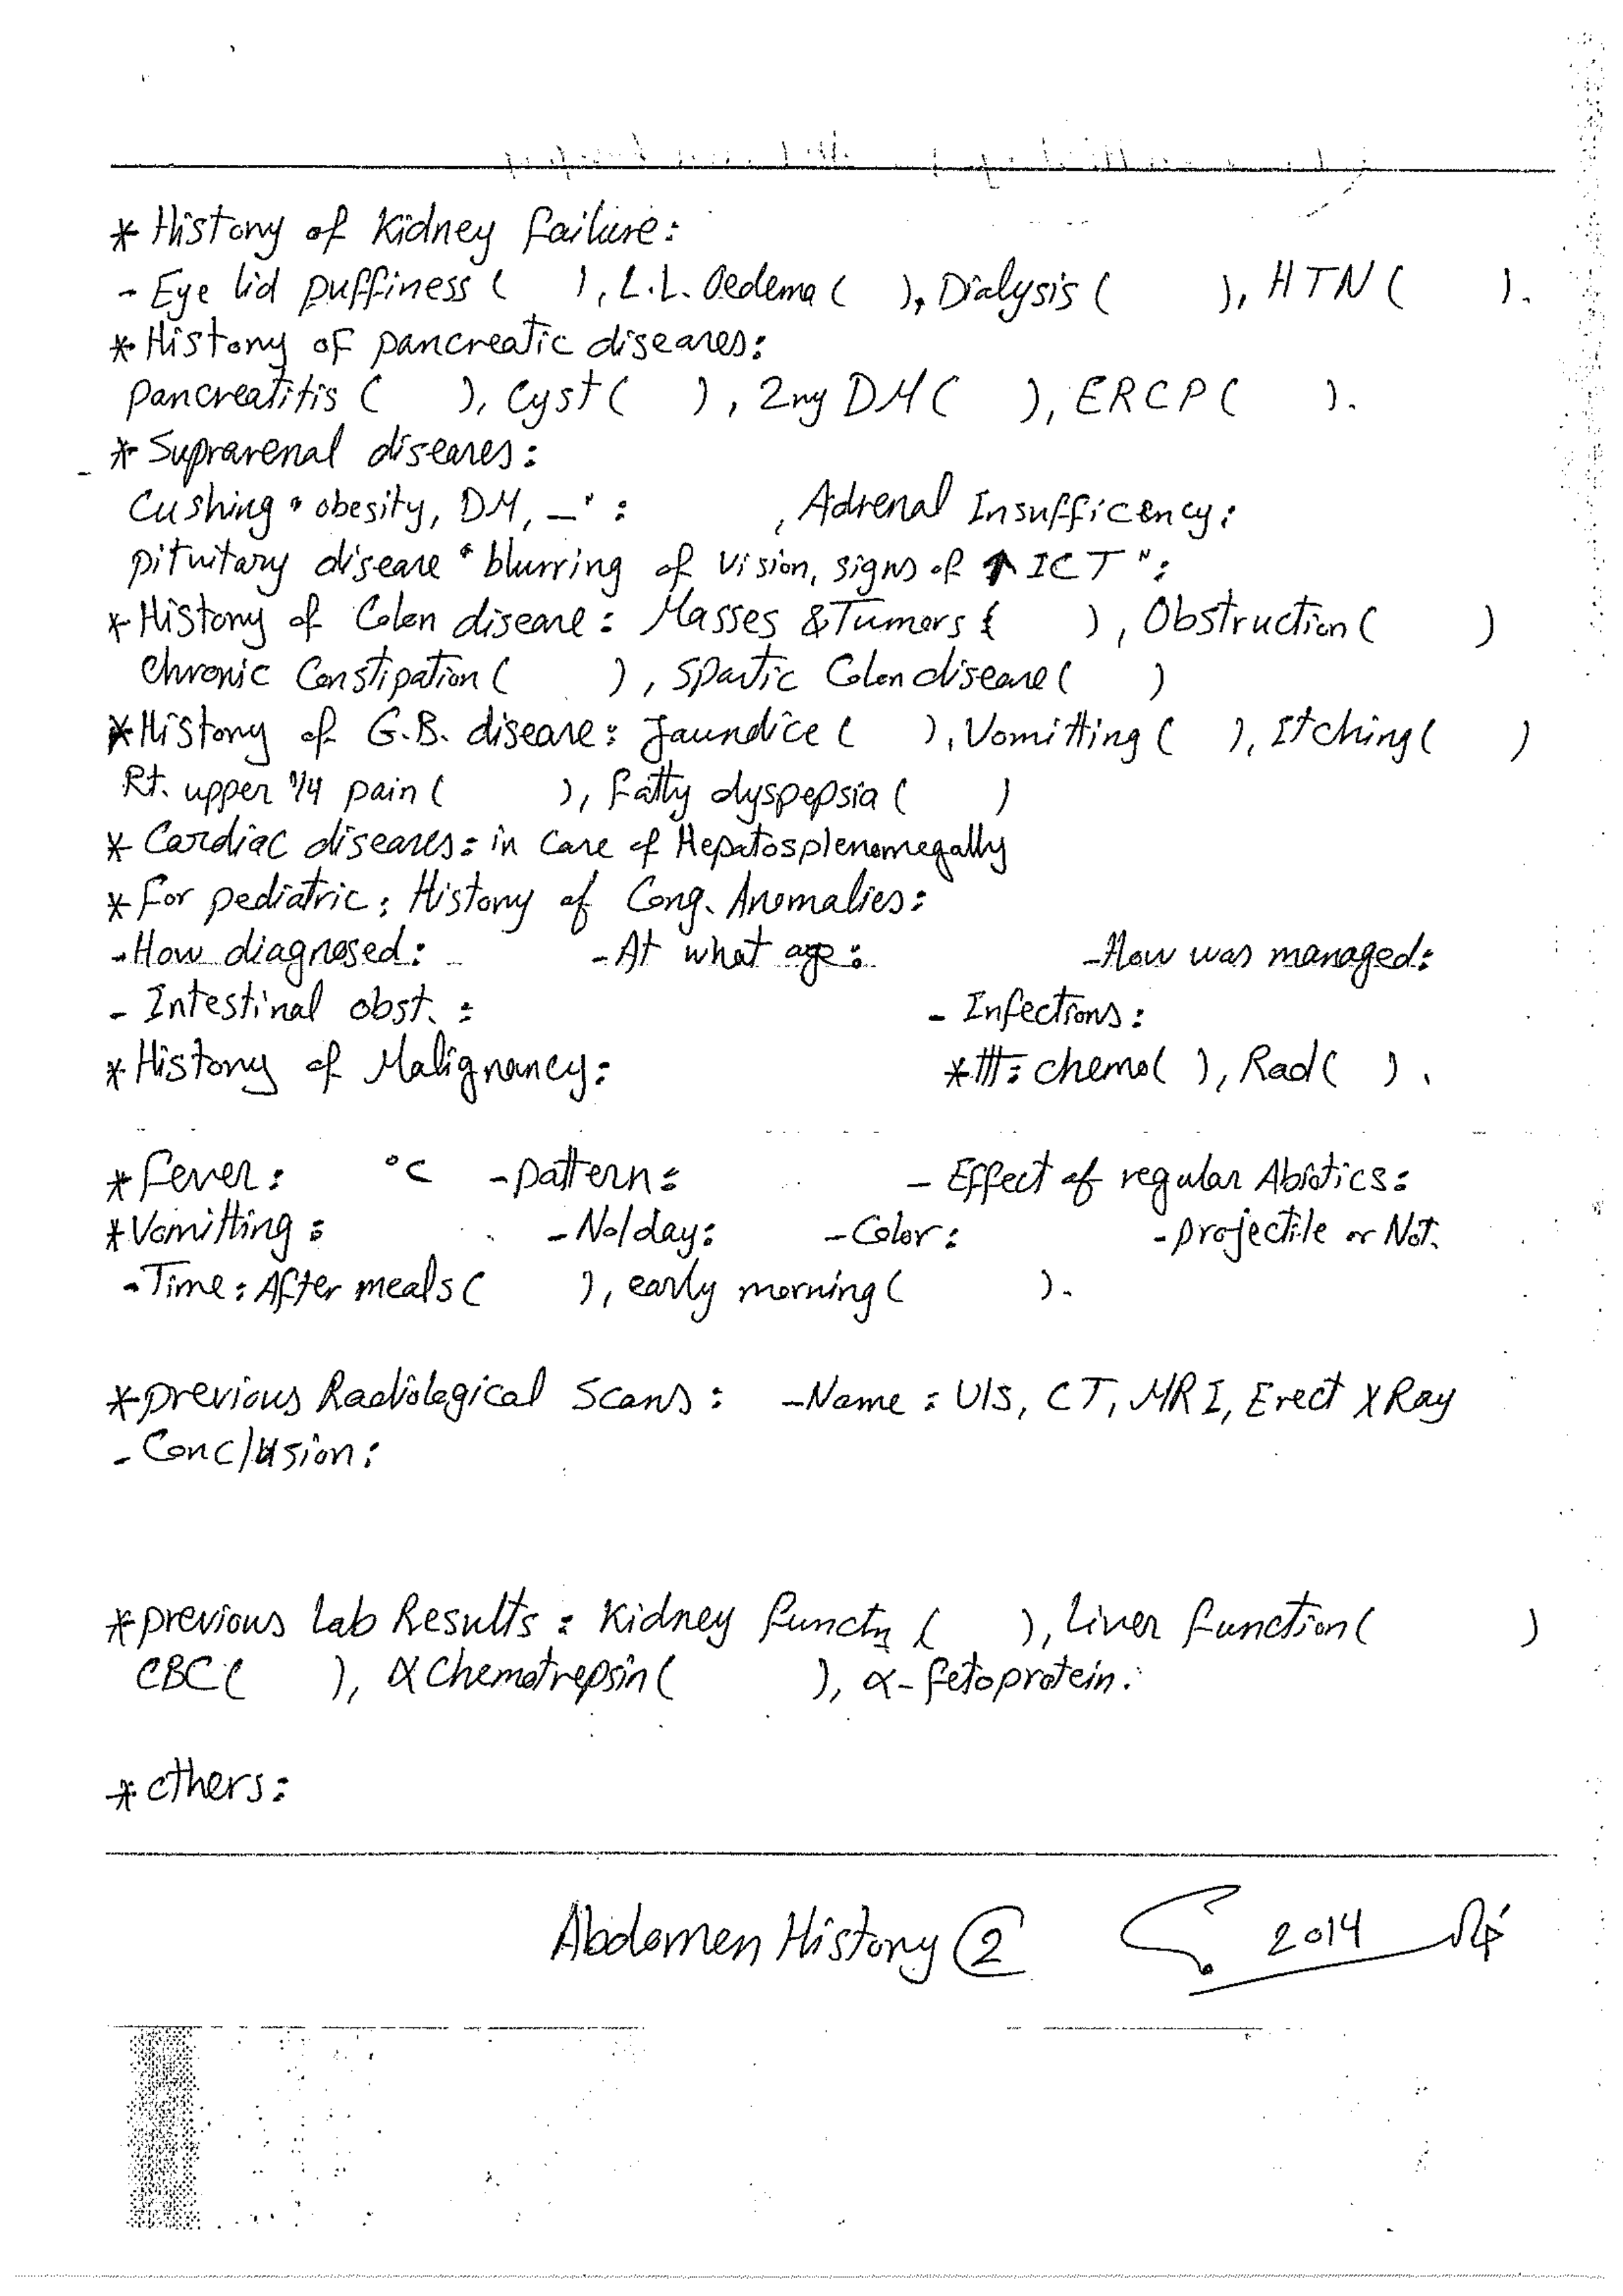 * History of Kidney failure:
- Eye lid puffiness ( ), L.L. Oedema ( ), Dialysis ( ), HTN ( ).
* History of pancreatic diseases:
pancreatitis ( ), Cyst ( ), 2ny DM ( ), ERCP ( ).
* Suprarenal diseases:
Cushing " obesity, DM, _" : , Adrenal Insufficency:
pituitary disease " blurring of vision, signs of ↑ ICT ":
* History of Colon disease: Masses & Tumors ( ), Obstruction ( )
Chronic Constipation ( ), Spastic Colon disease ( )
* History of G.B. disease: Jaundice ( ), Vomitting ( ), Itching ( )
Rt. upper 1/4 pain ( ), Fatty dyspepsia ( )
* Cardiac diseases: in case of Hepatosplenomegally
* For pediatric: History of Cong. Anomalies:
- How diagnosed: - At what age: - How was managed:
- Intestinal obst. : - Infections:
* History of Malignancy: * ttt: chemo ( ), Rad ( ).
* Fever: °C - pattern: - Effect of regular Abiotics:
* Vomitting : - No/day: - Color: - projectile or Not.
- Time: After meals ( ), early morning ( ).
* previous Radiological Scans: - Name: U/S, CT, MRI, Erect X Ray
- Conclusion:
* previous Lab Results : Kidney functn ( ), Liver function ( )
CBC ( ), α Chemotrepsin ( ), α- fetoprotein:
* others:
Abdomen History 2 2014